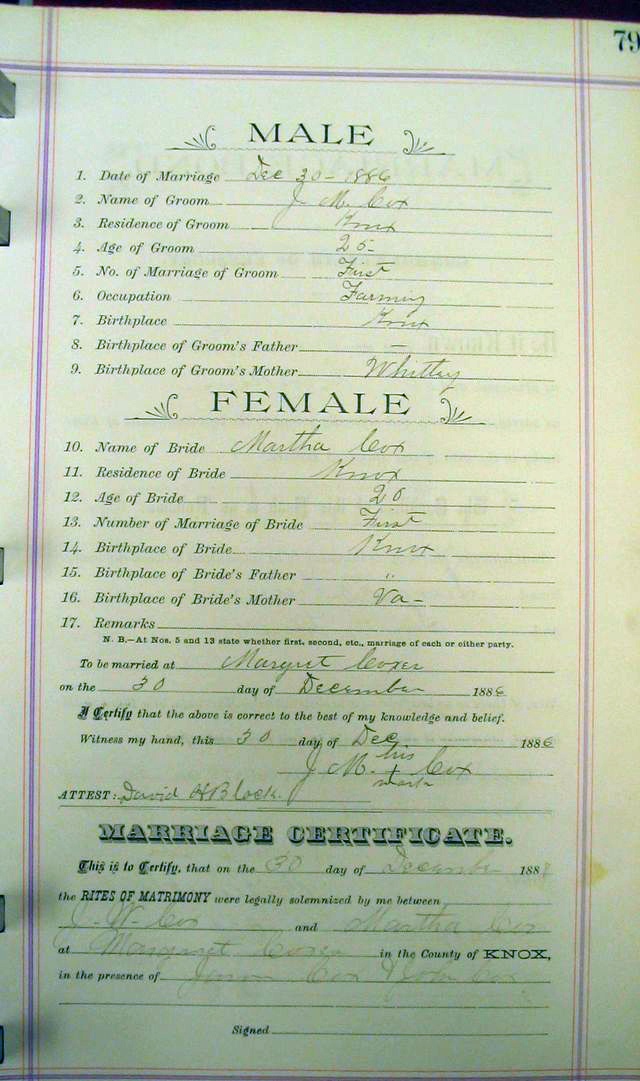 79
MALE
1. Date of Marriage Dec 30 - 1886
2. Name of Groom J. M. Cox
3. Residence of Groom Knox
4. Age of Groom 25-
5. No. of Marriage of Groom First
6. Occupation Farming
7. Birthplace Knox
8. Birthplace of Groom's Father —
9. Birthplace of Groom's Mother Whitley
FEMALE
10. Name of Bride Martha Cox
11. Residence of Bride Knox
12. Age of Bride 20
13. Number of Marriage of Bride First
14. Birthplace of Bride Knox
15. Birthplace of Bride's Father "
16. Birthplace of Bride's Mother Va -
17. Remarks
N. B.—At Nos. 5 and 13 state whether first, second, etc., marriage of each or either party.
To be married at Margret Coxes
on the 30 day of December 1886
I Certify that the above is correct to the best of my knowledge and belief.
Witness my hand, this 30 day of Dec 1886
his
J M. + Cox
mark
ATTEST: David H Block.
MARRIAGE CERTIFICATE.
This is to Certify, that on the 30 day of December 188
the RITES OF MATRIMONY were legally solemnized by me between
J. W. Cox and Martha Cox
at Margret Coxes in the County of KNOX,
in the presence of Cox & John Cox
Signed